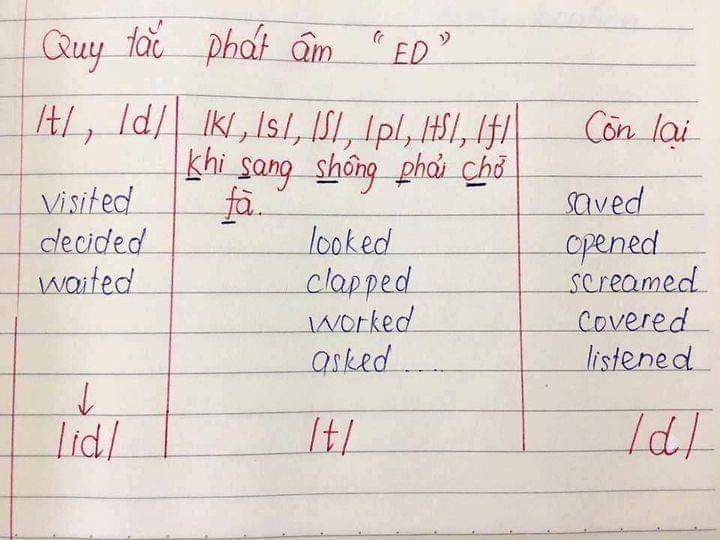 Quy tắc phát âm “ED”
/t/, /d/ /k/, /s/, /ʃ/, /p/, /tʃ/, /f/ Còn lại
khi sang shông phải chở
visited fà. saved
decided looked opened
waited clapped screamed
worked covered
asked .... listened
↓
/id/ /t/ /d/